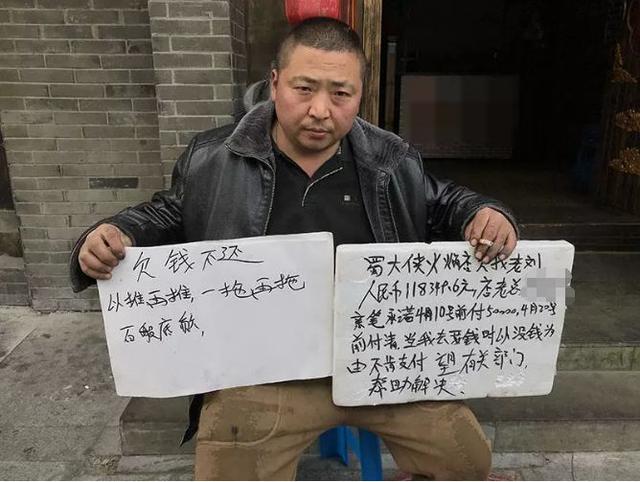 欠钱不还
以推再推,一拖再拖
百般底赖,
蜀大侠火焗店欠我老刘
人民币118349.6元,店老总
亲笔承诺4月10号前付50000,4月20号
前付清,当我去要钱时以没钱为
由不肯支付 望有关部门,
帮助解决.